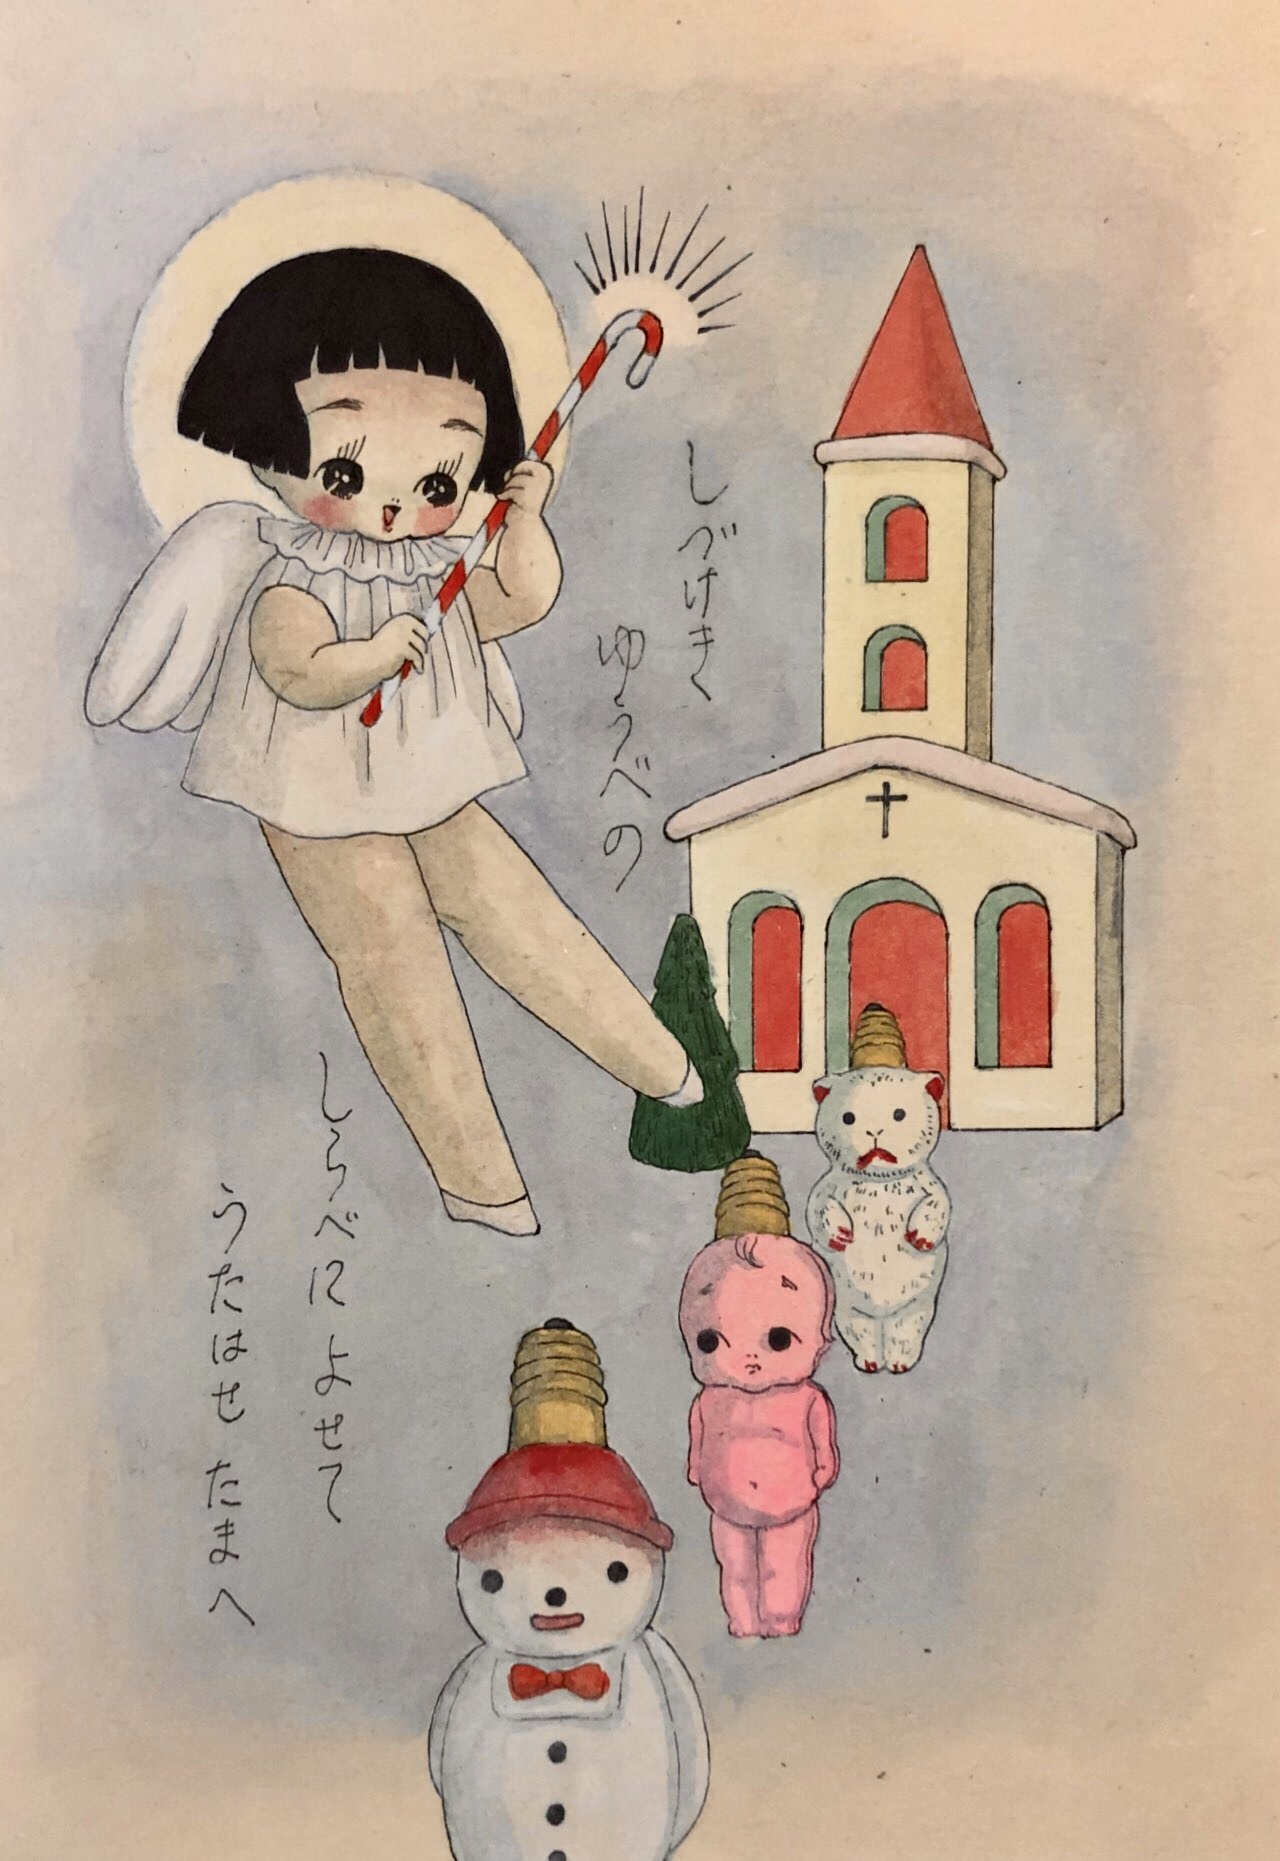 しづけき
ゆうべの
しらべに よせて
うたはせ たまへ